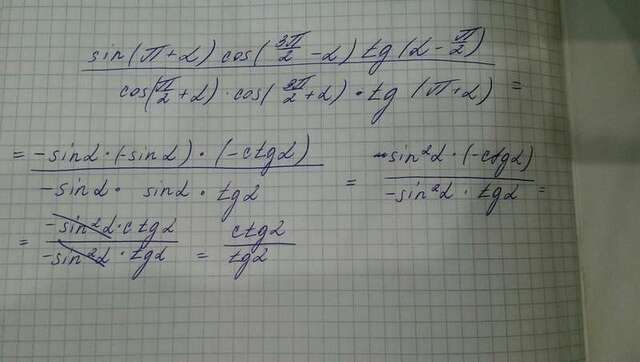 sin(π+α) cos(3π/2 -α) tg(α- π/2)
cos(π/2 +α) · cos(3π/2 +α) · tg (π+α) =
= -sinα·(-sinα) · (-ctgα) / -sinα · sinα · tgα = sin²α · (-ctgα) / -sin²α · tgα =
= -sin²α · ctgα / -sin²α · tgα = ctgα / tgα